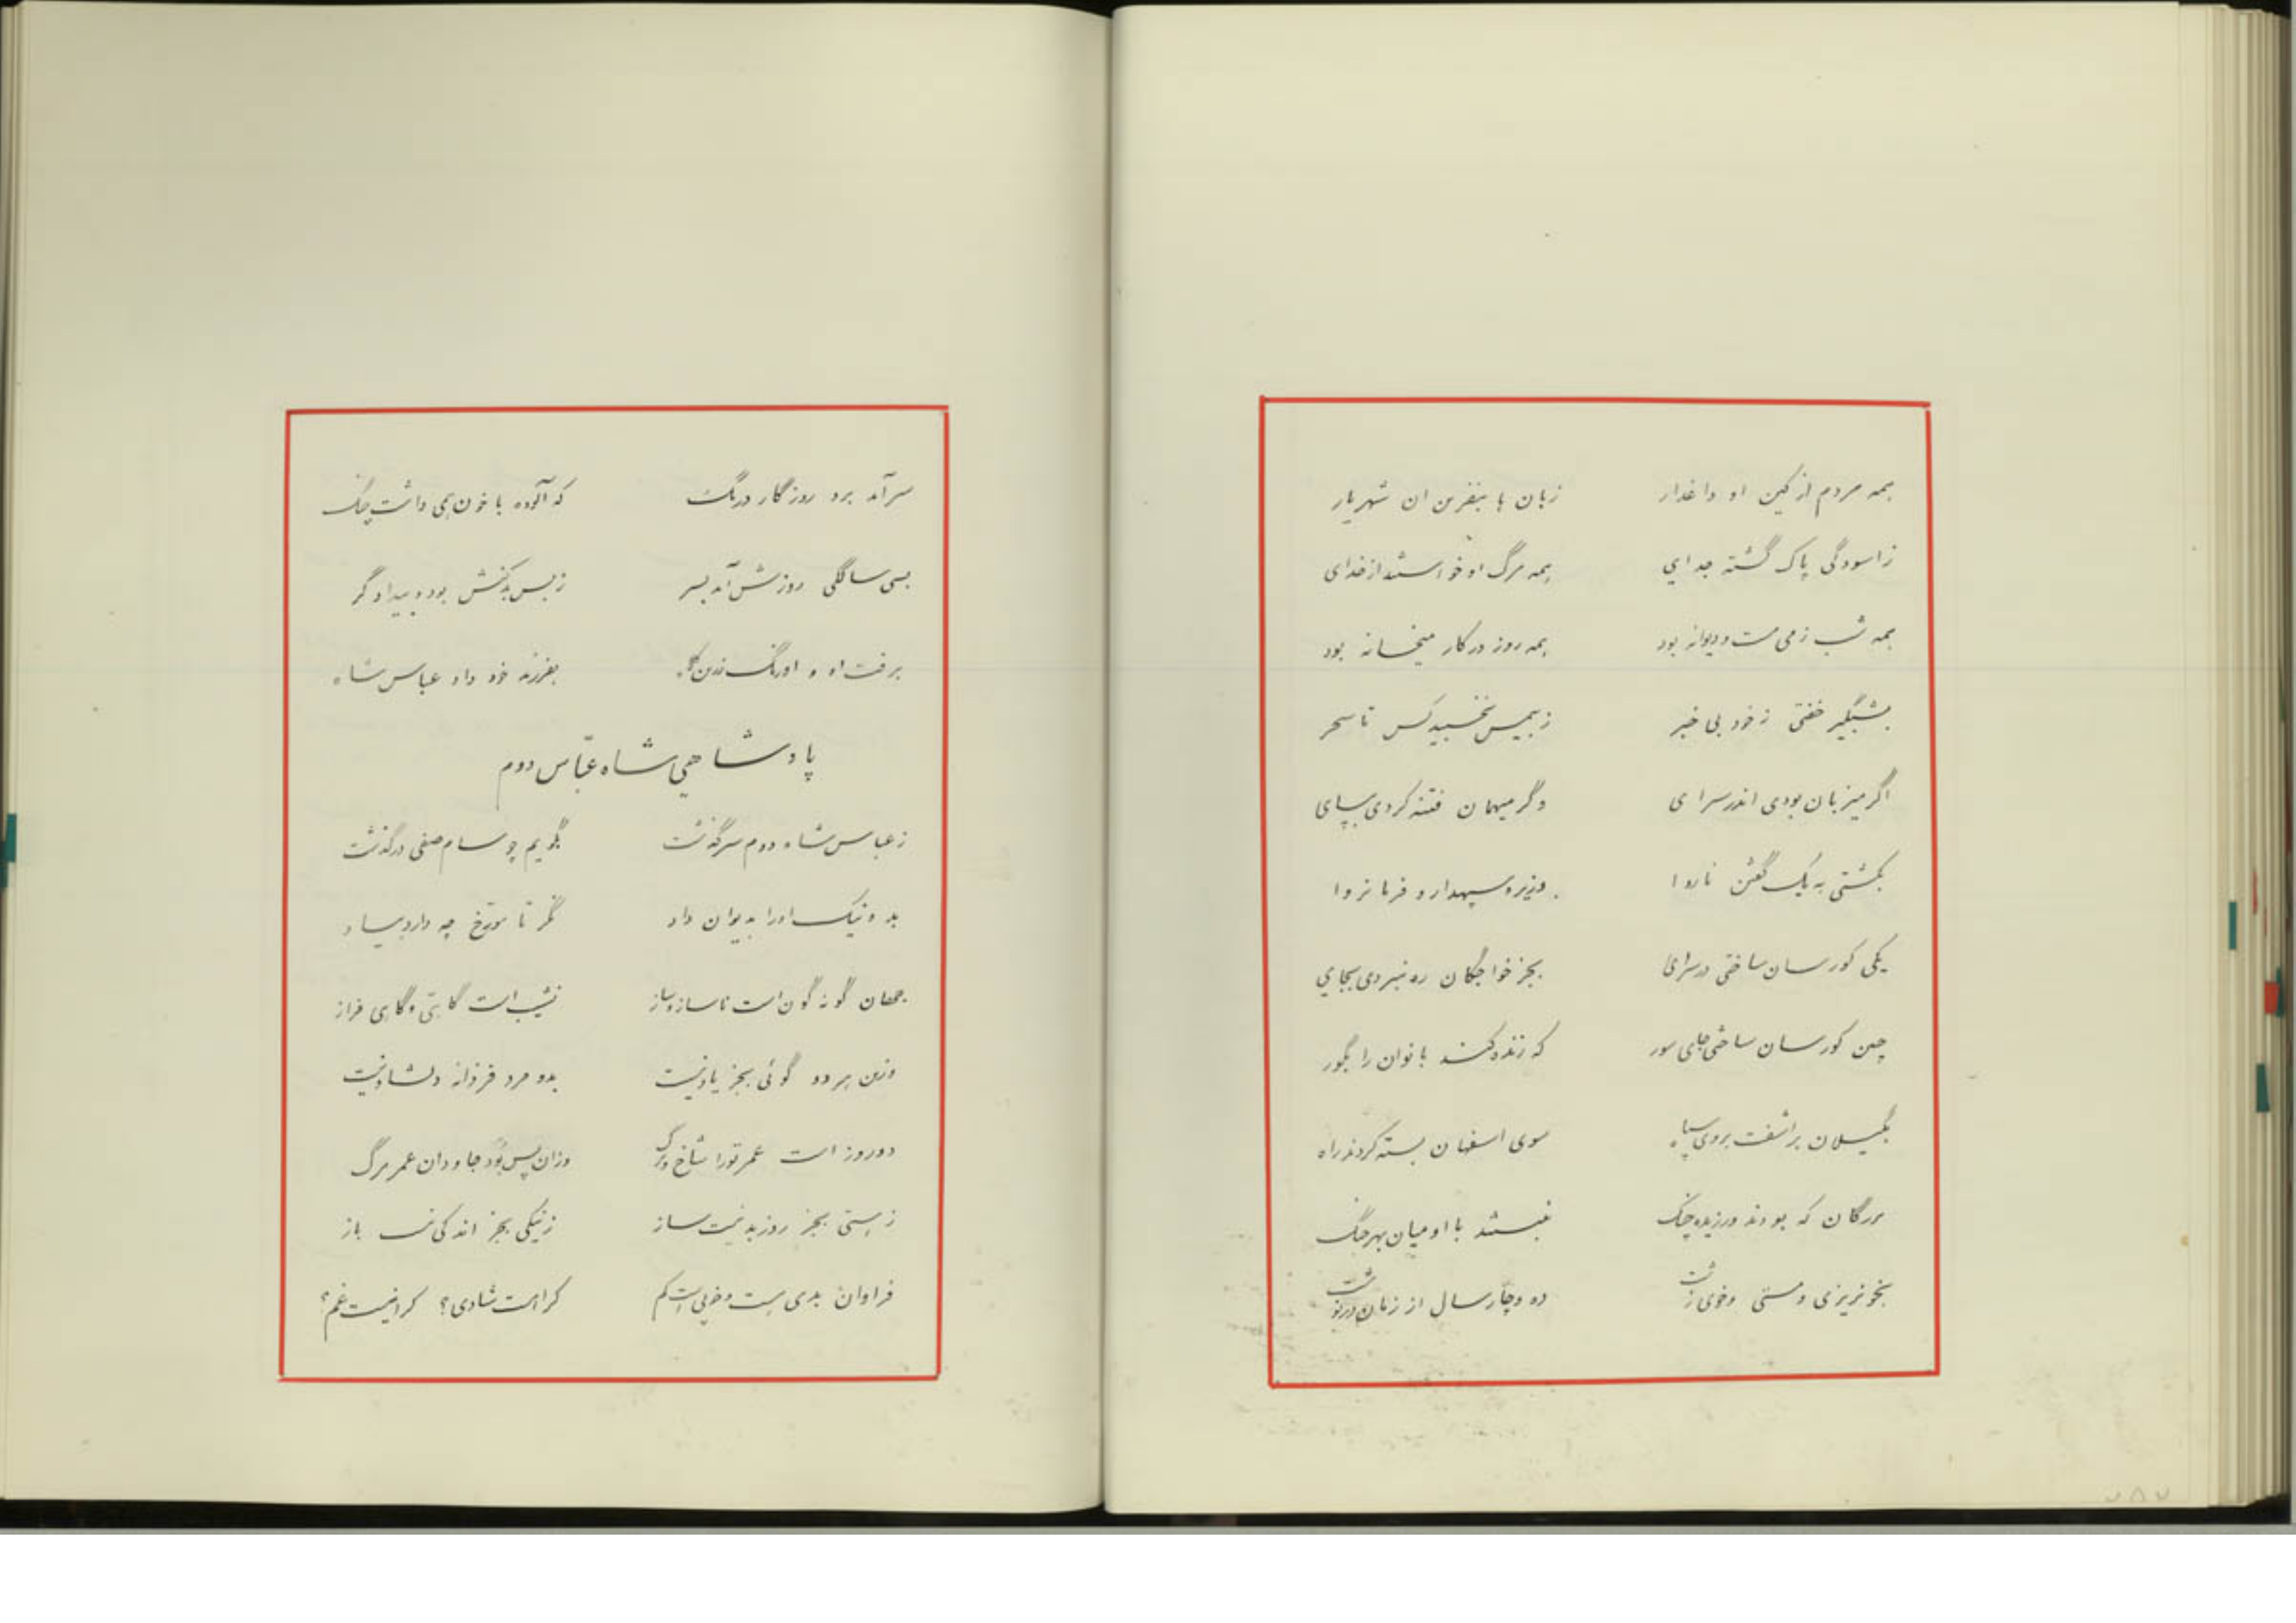 همه مردم از کین او داغدار    زبان ها بنفرین ان شهریار
ز اسودگی پاک گشته جدای    همه مرگ او خواستند از خدای
همه شب ز می مست و دیوانه بود    همه روز در کار میخانه بود
بشبگیر خفتی ز خود بی خبر    ز بیمش نخسبید کس تا سحر
اگر میزبان بودی اندر سرای    و گر میهمان فتنه کردی بپای
بکشتی به یک گفتن ناروا    وزیر و سپهدار و فرمانروا
یکی گورسان ساختی در سرای    بجز خواجگان ره نبردی بجای
چنین گورسان ساختی جای سور    که زنده کنند بانوان را بگور
بگیلان براشفت بر وی سپاه    سوی اسفهان بسته کردند راه
بزرگان که بودند ورزیده چنگ    نبستند با او میان بهر جنگ
بخونریزی و مستی و خوی زشت    ده و چار سال از زمان در نوشت
سر آمد برو روزگار درنگ    که آلوده با خون همی داشت چنگ
بسی سالگی روزش آمد بسر    ز بس بدکنش بود و بیدادگر
برفت او و اورنگ زرین گاه    بفرزند خود داد عباس شاه
پادشاهی شاه عبّاس دوم
ز عباس شاه دوم سرگذشت    بگویم چو سام صفی درگذشت
بد و نیک او را بدیوان داد    نگر تا مورّخ چه دارد بیاد
جهان گونه گون است ناساز و ساز    نشیب است گاهی و گاهی فراز
وزین هر دو گوئی بجز یاد نیست    بدو مرد فرزانه دلشاد نیست
دو روز است عمر تو را شاخ و برگ    وزان پس بُوَد جاودان عمر مرگ
ز هستی بجز روز بد نیست ساز    ز نیکی بجز اندکی نیست باز
فراوان بدی هست و خوبی است کم    کرا هست شادی؟ کرا نیست غم؟
۷۸۷